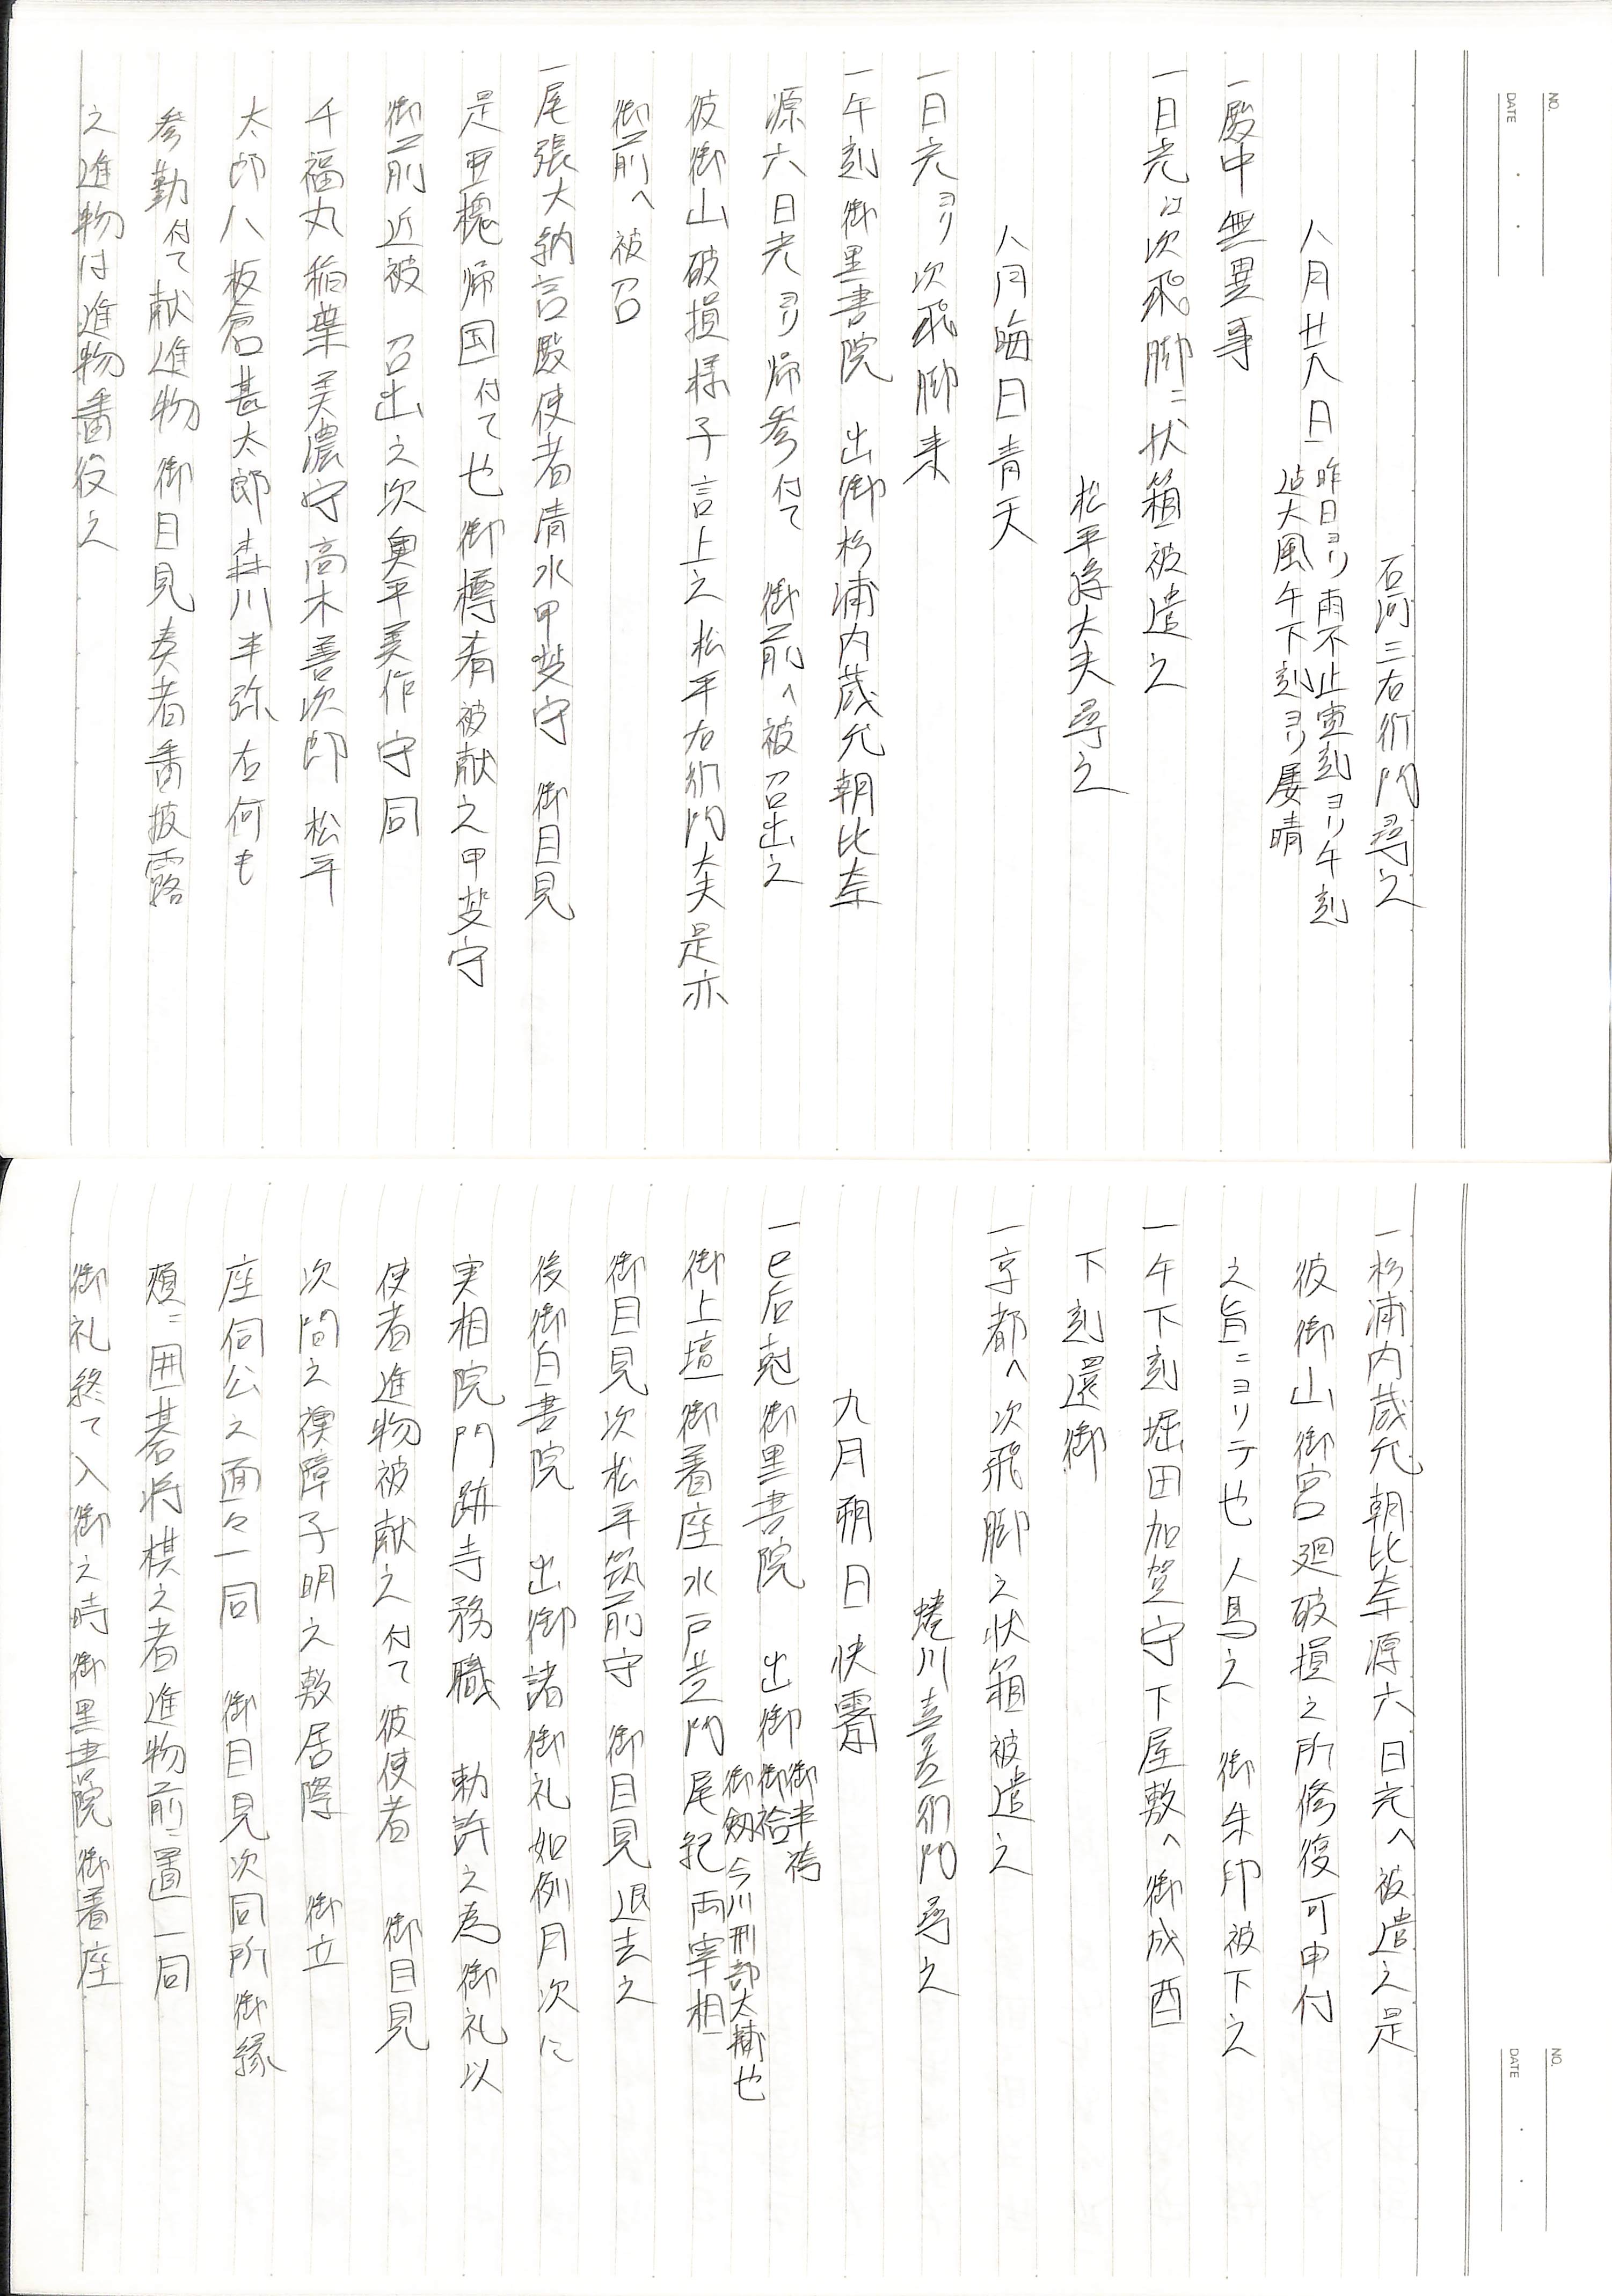 NO.
DATE
石河三右衛門尋之
八月廿八日 昨日ヨリ雨不止寅刻ヨリ午刻
迄大風午下刻ヨリ属晴
一殿中無異事
一日光江次飛脚ニ状箱被遣之
松平隼人夫尋之
八月晦日青天
一日光ヨリ次飛脚来
一午刻御黒書院 出御杉浦内蔵允朝比奈
源六日光ヨリ帰参付て 御前へ被召出之
彼御山破損様子言上之松平右衛門大夫是亦
御前へ被召
一尾張大納言殿使者清水甲斐守 御目見
是亜槐帰国付て也御樽肴被献之甲斐守
御前近被 召出之次奥平美作守同
千福丸稲葉美濃守高木善次郎松平
太郎八板倉甚太郎森川半弥右何も
参勤付て献進物御目見奏者番披露
之進物は進物番役之
NO.
DATE
一杉浦内蔵允朝比奈源六日光へ被遣之是
彼御山御宮廻破損之所修復可申付
之旨ニヨリテ也人馬之 御朱印被下之
一午下刻堀田加賀守下屋敷へ御成酉
下刻還御
一京都へ次飛脚之状箱被遣之
蜷川喜左衛門尋之
九月朔日快霽
一巳后剋御黒書院 出御 御半袴
御袷
御劔今川刑部大輔也
御上壇御着座水戸黄門尾紀両宰相
御目見次松平筑前守御目見退去之
後御白書院 出御諸御礼如例月次に
実相院門跡寺務職 勅許之為御礼以
使者進物被献之付て彼使者 御目見
次間之襖障子明之敷居際 御立
座伺公之面々一同 御目見次同所御縁
頬ニ囲碁将棋之者進物前ニ置一同
御礼終て入御之時御黒書院御着座